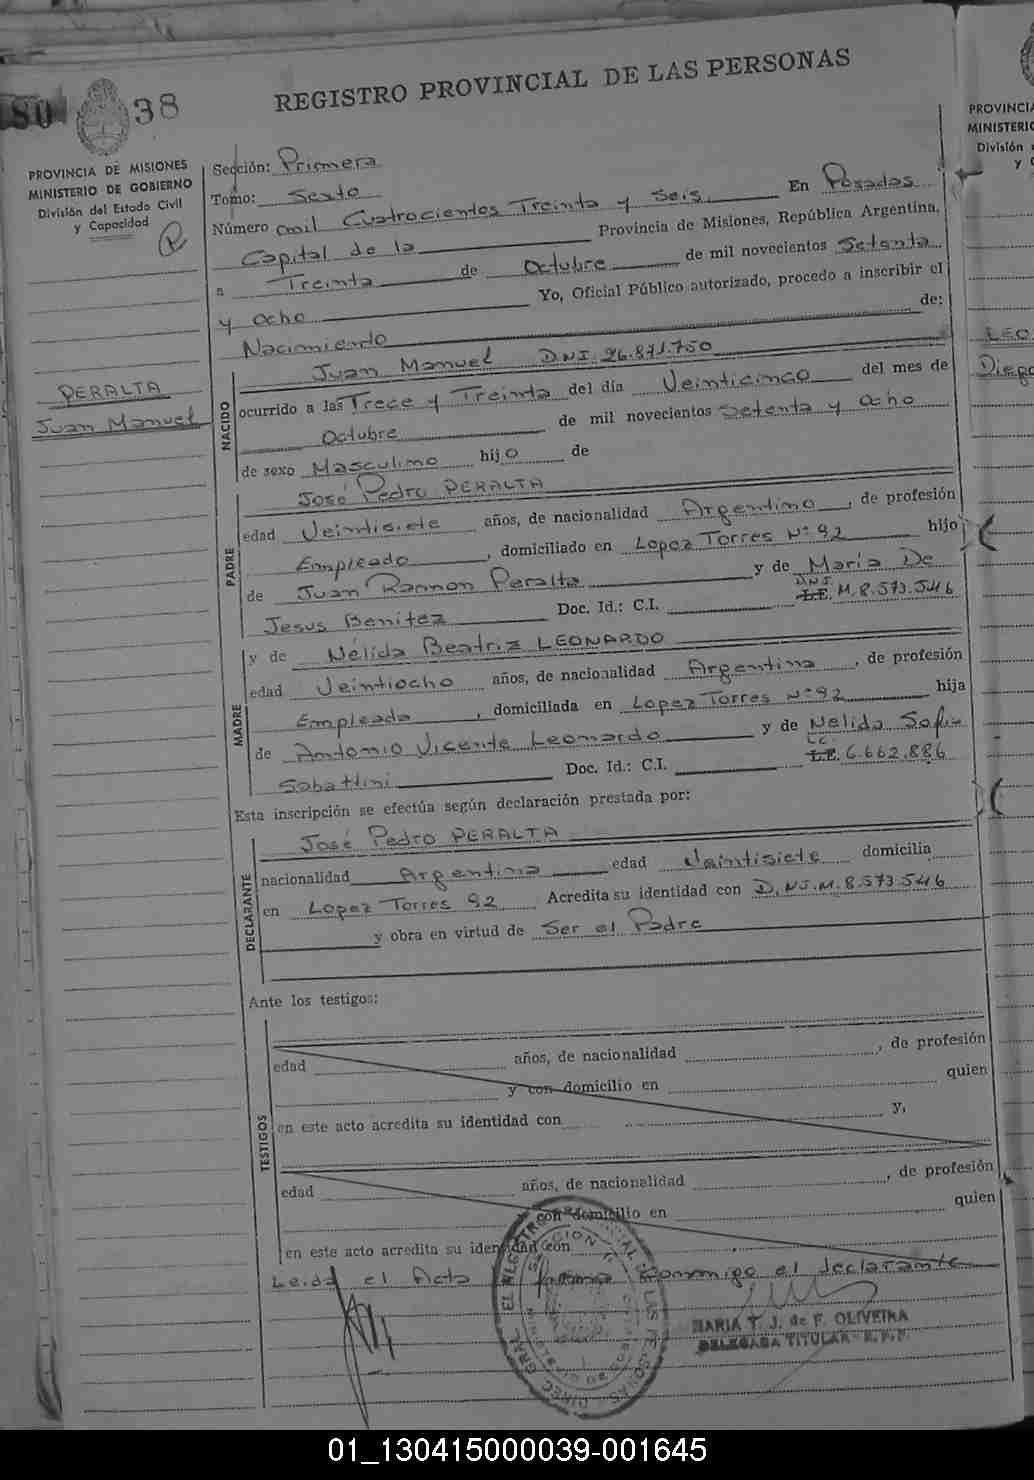 REGISTRO PROVINCIAL DE LAS PERSONAS
80 38
PROVINCIA DE MISIONES
MINISTERIO DE GOBIERNO
División del Estado Civil
y Capacidad
PERALTA
Juan Manuel
Sección: Primera
Tomo: Sexto
Número mil Cuatrocientos Treinta y Seis En Posadas
Capital de la Provincia de Misiones, República Argentina,
a Treinta de Octubre de mil novecientos Setenta
y ocho Yo, Oficial Público autorizado, procedo a inscribir el
Nacimiento de:
NACIDO
Juan Manuel DNI. 26.871.750
ocurrido a las Trece y Treinta del día Veinticinco del mes de
Octubre de mil novecientos Setenta y ocho
de sexo Masculino hijo de
PADRE
José Pedro PERALTA
edad Veintisiete años, de nacionalidad Argentino, de profesión
Empleado, domiciliado en Lopez Torres Nº 92 hijo
de Juan Ramon Peralta y de María De
Jesus Benitez Doc. Id.: C.I. L.E. DNI. M. 8.573.546
MADRE
y de Nélida Beatriz LEONARDO
edad Veintiocho años, de nacionalidad Argentina, de profesión
Empleada, domiciliada en Lopez Torres Nº 92 hija
de Antonio Vicente Leonardo y de Nelida Sofia
Sabattini Doc. Id.: C.I. L.E. L.C. 6.662.886
Esta inscripción se efectúa según declaración prestada por:
DECLARANTE
José Pedro PERALTA
nacionalidad Argentina edad Veintisiete domicilia
en Lopez Torres 92 Acredita su identidad con D.NI.M. 8.573.546
y obra en virtud de Ser el Padre
Ante los testigos:
TESTIGOS
edad años, de nacionalidad, de profesión
y con domicilio en quien
en este acto acredita su identidad con y,
edad años, de nacionalidad, de profesión
con domicilio en quien
en este acto acredita su identidad con
Leida el Acta firma conmigo el declarante
MARIA T. J. de F. OLIVEIRA
DELEGADA TITULAR - R.P.P.
PROVINCIA
MINISTERIO
División
y C
LEO
Diego
01_130415000039-001645